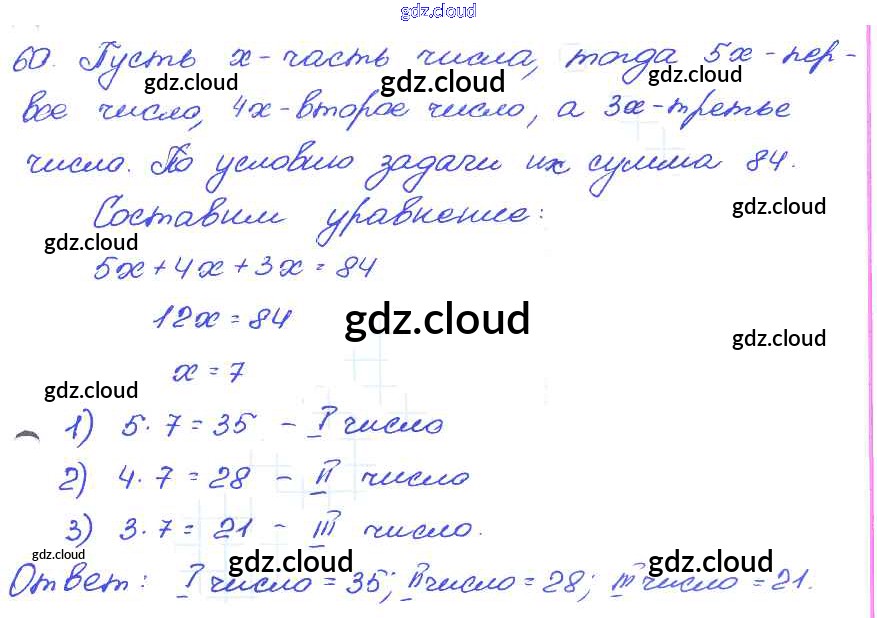 gdz.cloud
60. Пусть x - часть числа, тогда 5x - пер-
gdz.cloud gdz.cloud gdz.cloud
вое число, 4x - второе число, а 3x - третье
число. По условию задачи их сумма 84.
gdz.cloud
Составим уравнение:
gdz.cloud
5x + 4x + 3x = 84
12x = 84
gdz.cloud
gdz.cloud
x = 7
gdz.cloud
1) 5 · 7 = 35 - I число
2) 4 · 7 = 28 - II число
3) 3 · 7 = 21 - III число.
gdz.cloud gdz.cloud gdz.cloud
Ответ: I число = 35; II число = 28; III число = 21.